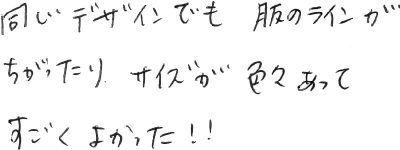 同じデザインでも 服のラインが
ちがったり サイズが 色々あって
すごく よかった!!